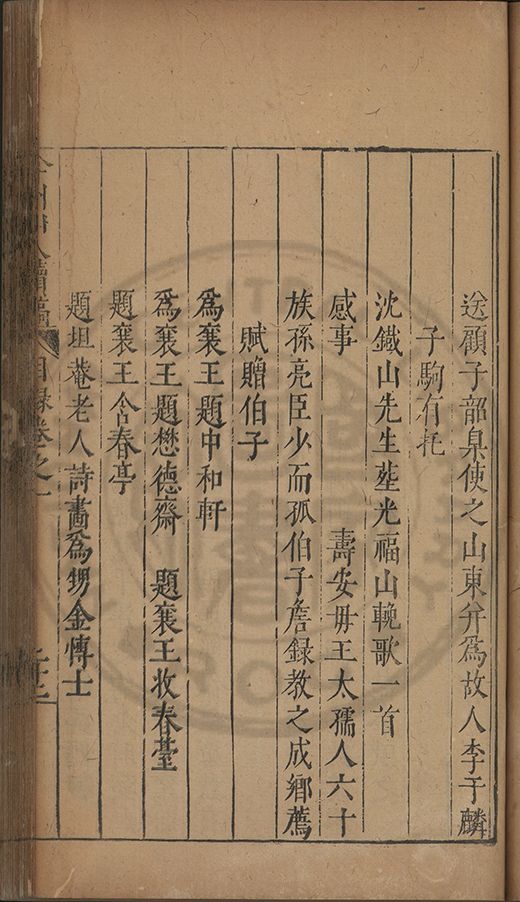 送顧子韶臬使之山東并爲故人李于麟
子駒有托
沈鐵山先生塟光福山輓歌一首
感事　壽安毋王太孺人六十
族孫亮臣少而孤伯子詹録教之成鄉薦
賦贈伯子
爲襄王題中和軒
爲襄王題懋德齋　題襄王收春臺
題襄王含春亭
題坦菴老人詩畵爲甥金博士
人續稿　目録卷之